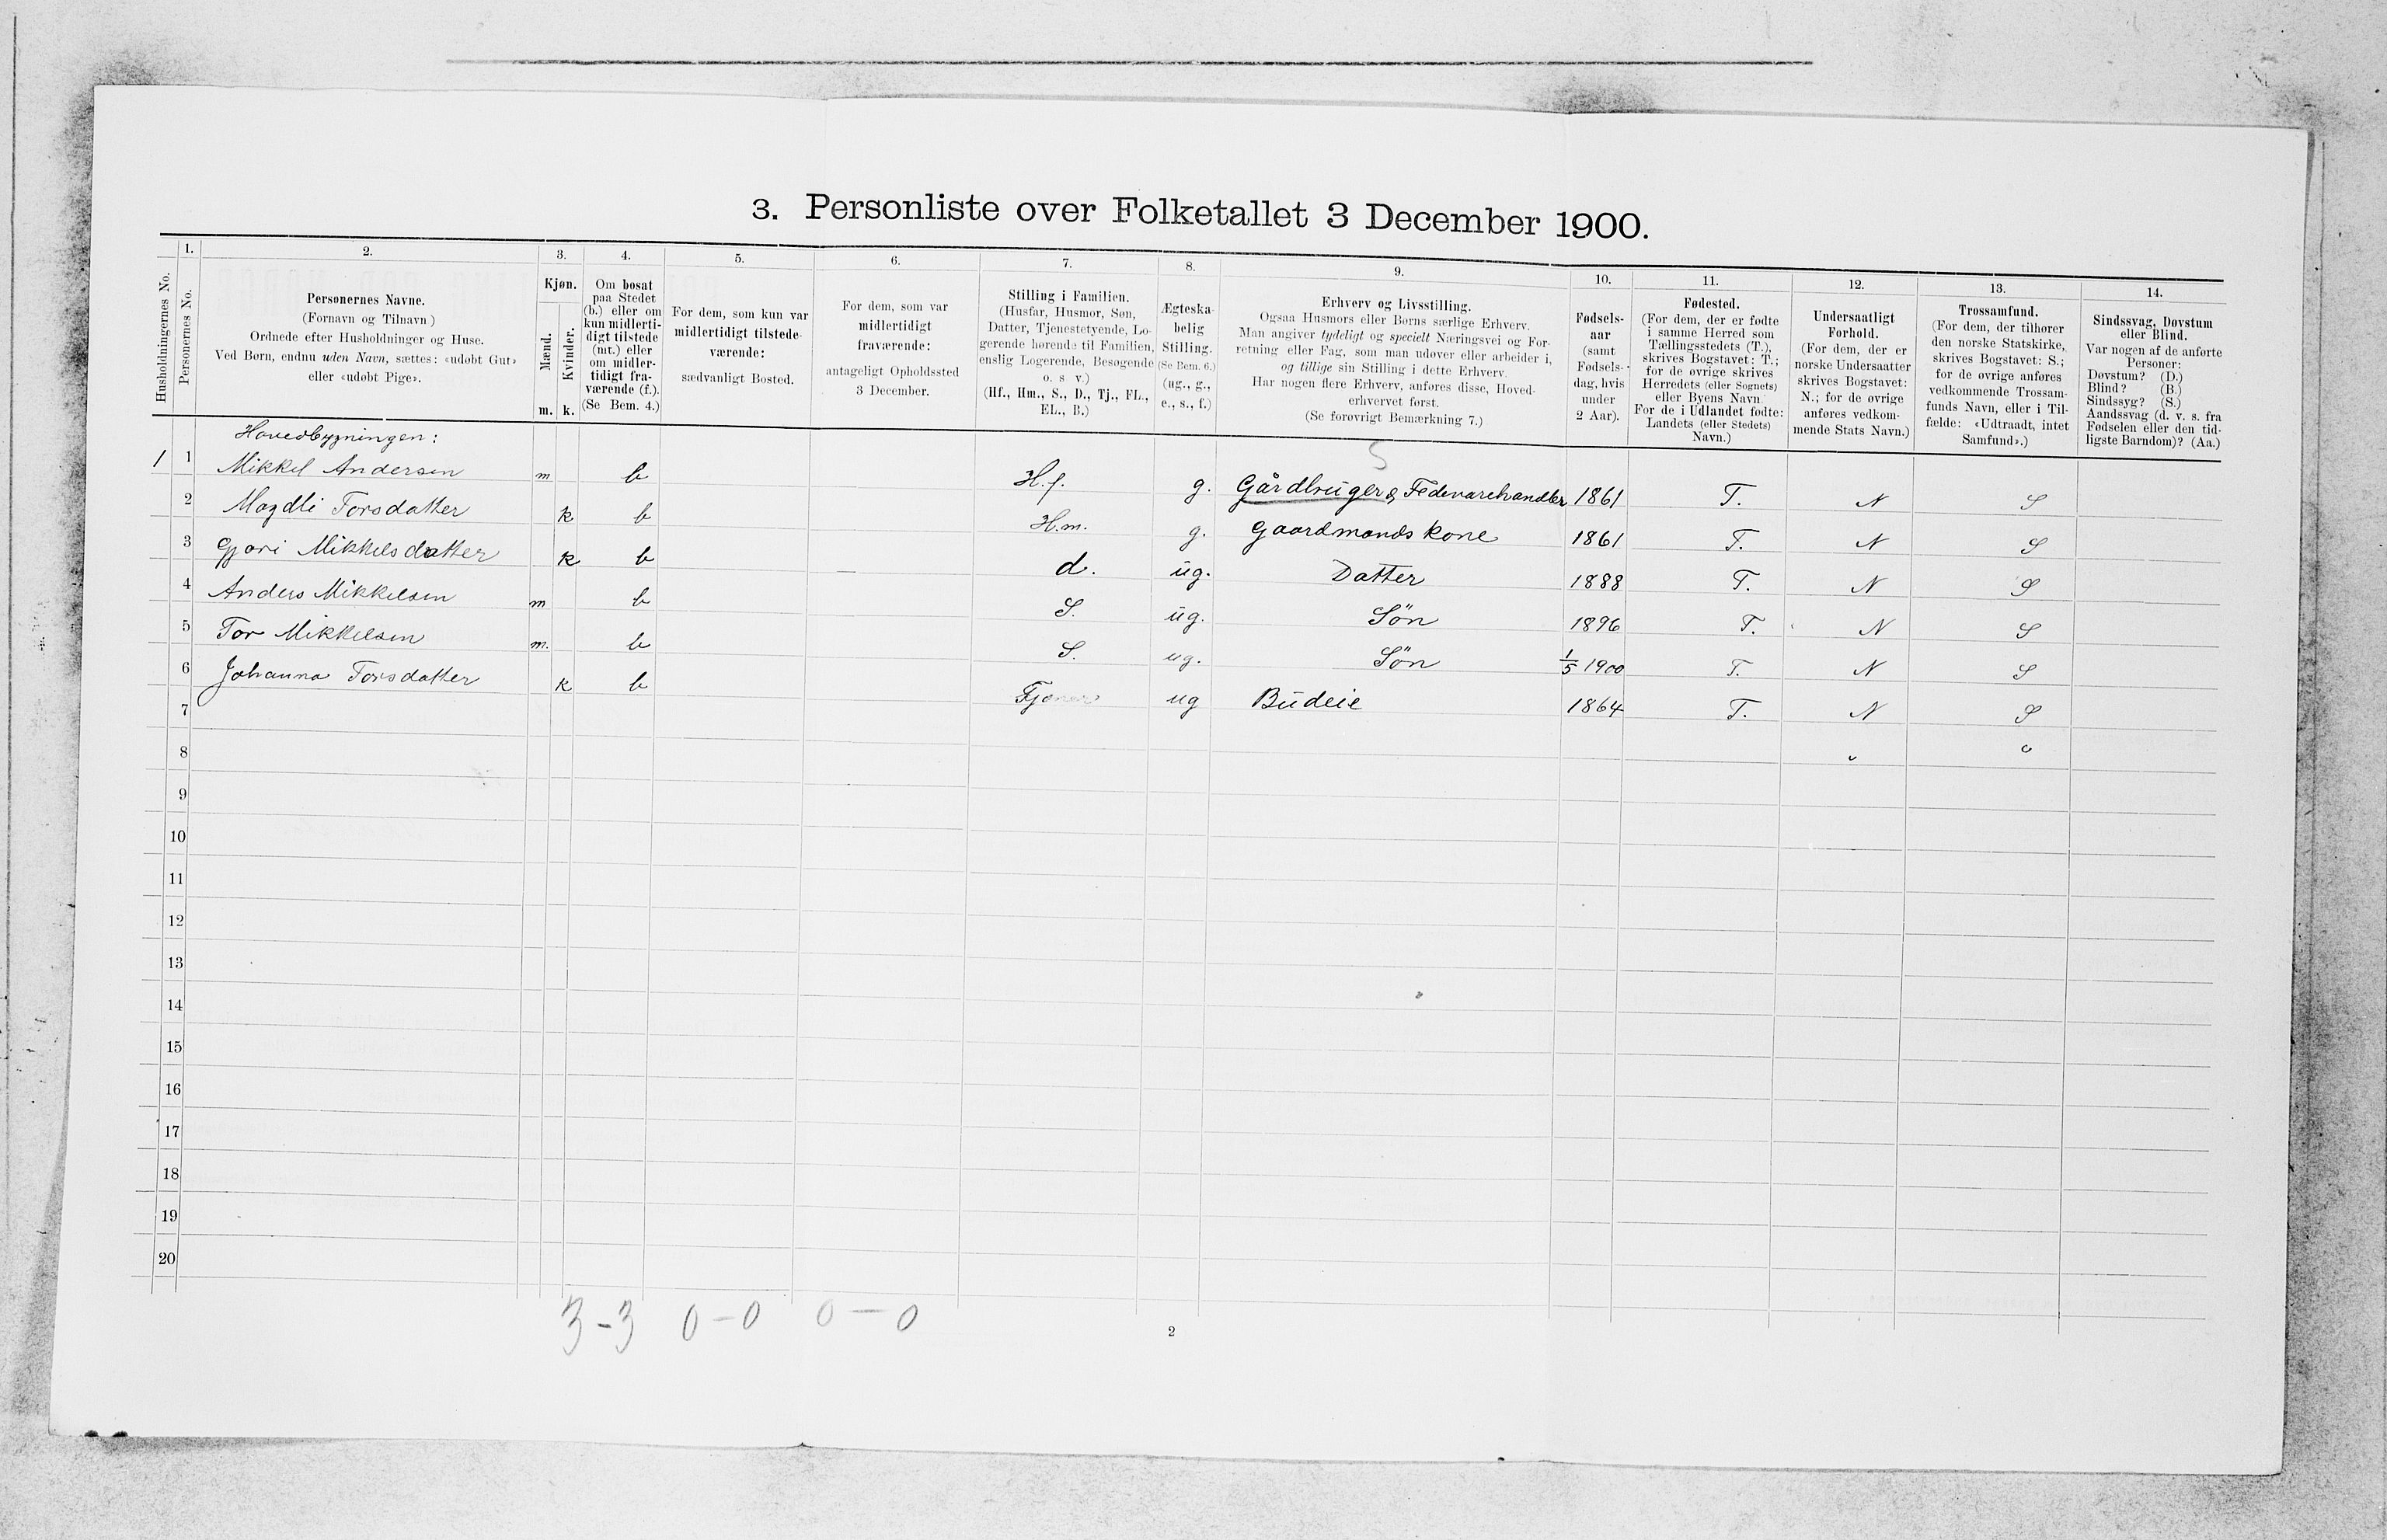 3. Personliste over Folketallet 3 December 1900.
1. 2. 3. 4. 5. 6. 7. 8. 9. 10. 11. 12. 13. 14.
Husholdningernes No.
Personernes No.
Personernes Navne.
(Fornavn og Tilnavn)
Ordnede efter Husholdninger og Huse.
Ved Børn, endnu uden Navn, sættes: «udøbt Gut»
eller «udøbt Pige».
Kjøn.
Mænd.
Kvinder.
m. k.
Om bosat
paa Stedet
(b.) eller om
kun midlerti-
digt tilstede
(mt.) eller
om midler-
tidigt fra-
værende (f.).
(Se Bem. 4.)
For dem, som kun var
midlertidigt tilstede-
værende:
sædvanligt Bosted.
For dem, som var
midlertidigt
fraværende:
antageligt Opholdssted
3 December.
Stilling i Familien.
(Husfar, Husmor, Søn,
Datter, Tjenestetyende, Lo-
gerende hørende til Familien,
enslig Logerende, Besøgende
o. s v.)
(Hf., Hm., S., D., Tj., FL.,
EL., B.)
Ægteska-
belig
Stilling.
(Se Bem. 6.)
(ug., g.,
e., s., f.)
Erhverv og Livsstilling.
Ogsaa Husmors eller Børns særlige Erhverv.
Man angiver tydeligt og specielt Næringsvei og For-
retning eller Fag, som man udøver eller arbeider i,
og tillige sin Stilling i dette Erhverv.
Har nogen flere Erhverv, anføres disse, Hoved-
erhvervet først.
(Se forøvrigt Bemærkning 7.)
Fødsels-
aar
(samt
Fødsels-
dag, hvis
under
2 Aar).
Fødested.
(For dem, der er fødte
i samme Herred som
Tællingsstedets (T.),
skrives Bogstavet: T.;
for de øvrige skrives
Herredets (eller Sognets)
eller Byens Navn.
For de i Udlandet fødte:
Landets (eller Stedets)
Navn.)
Undersaatligt
Forhold.
(For dem, der er
norske Undersaatter
skrives Bogstavet:
N.; for de øvrige
anføres vedkom-
mende Stats Navn.)
Trossamfund.
(For dem, der tilhører
den norske Statskirke,
skrives Bogstavet: S.;
for de øvrige anføres
vedkommende Trossam-
funds Navn, eller i Til-
fælde: «Udtraadt, intet
Samfund».)
Sindssvag, Døvstum
eller Blind.
Var nogen af de anførte
Personer:
Døvstum? (D.)
Blind? (B.)
Sindssyg? (S.)
Aandssvag (d. v. s. fra
Fødselen eller den tid-
ligste Barndom)? (Aa.)
Hovedbygningen: 5
1 1 Mikkel Andersen m b H.f. g. Gårdbruger & Fedevarehandler 1861 T. N S
2 Magdli Torsdatter k b H.m. g. Gaardmands kone 1861 T. N S
3 Gjøri Mikkelsdatter k b — d. ug. Datter 1888 T. N S
4 Anders Mikkelsen m b S. ug. Søn 1896 T. N S
5 Tor Mikkelsen m. b S. ug. Søn 1/5 1900 T. N S
6 Johanna Torsdatter k b Tjener ug Budeie 1864 T. N S
7
8
9
10
11
12
13
14
15
16
17
18
19
20
3-3 0-0 0-0
2